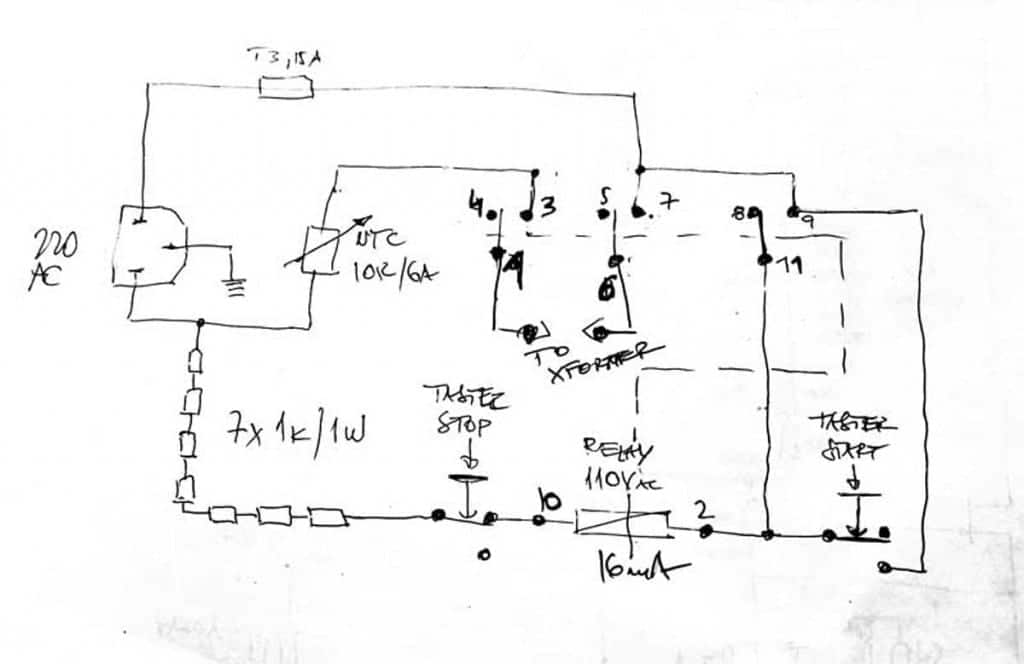 T3,15A
4
3
5
7
8
9
220
AC
NTC
10R/6A
11
6
TO
XFORMER
TASTER
STOP
7x 1k/1W
TASTER
START
RELAY
110VAC
10
2
16mA